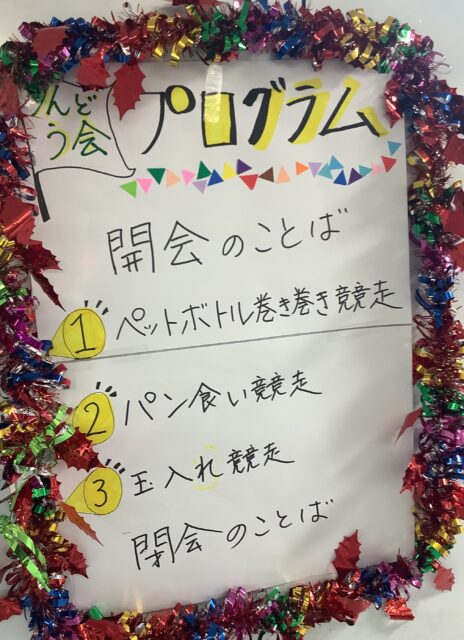 んどう会
プログラム
開会のことば
1 ペットボトル巻き巻き競走
2 パン食い競走
3 玉入れ競走
閉会のことば